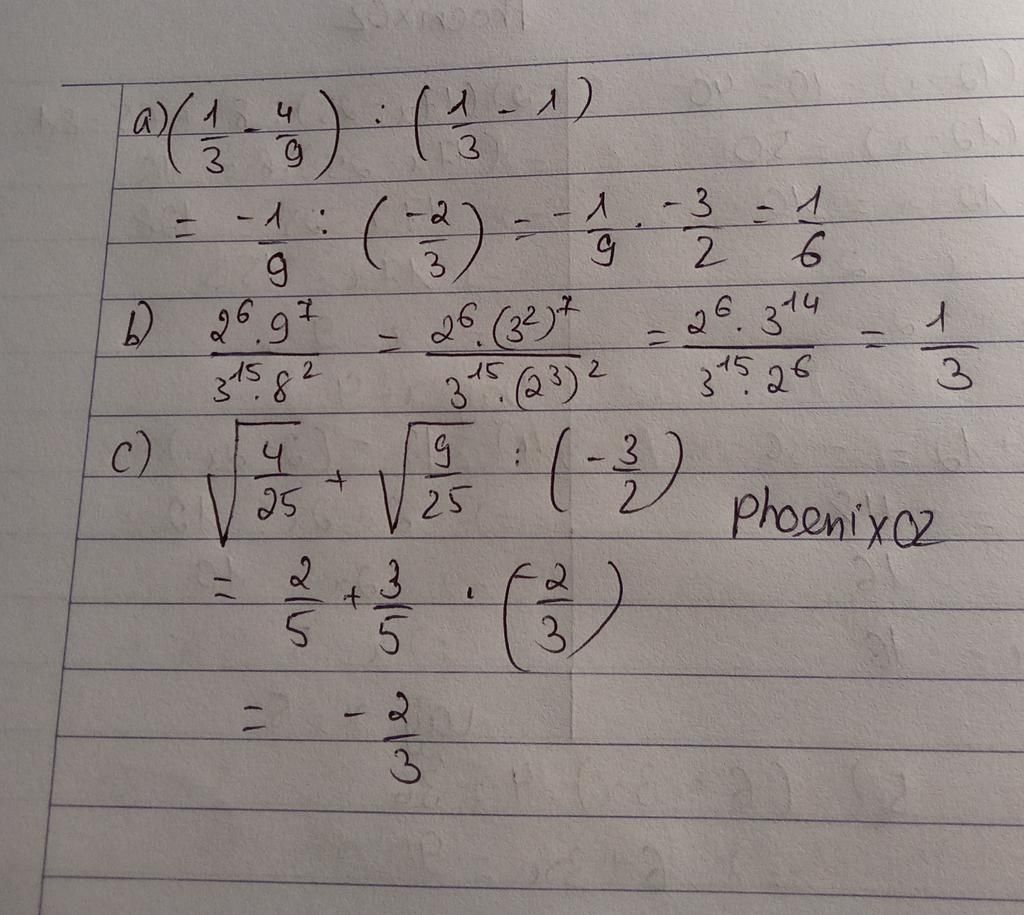 a) (1/3 - 4/9) : (1/3 - 1)
= -1/9 : (-2/3) = -1/9 . -3/2 = 1/6
b) 2^6 . 9^7 / 3^15 . 8^2 = 2^6 . (3^2)^7 / 3^15 . (2^3)^2 = 2^6 . 3^14 / 3^15 . 2^6 = 1/3
c) √(4/25) + √(9/25) : (-3/2)
Phoenix02
= 2/5 + 3/5 . (-2/3)
= -2/3